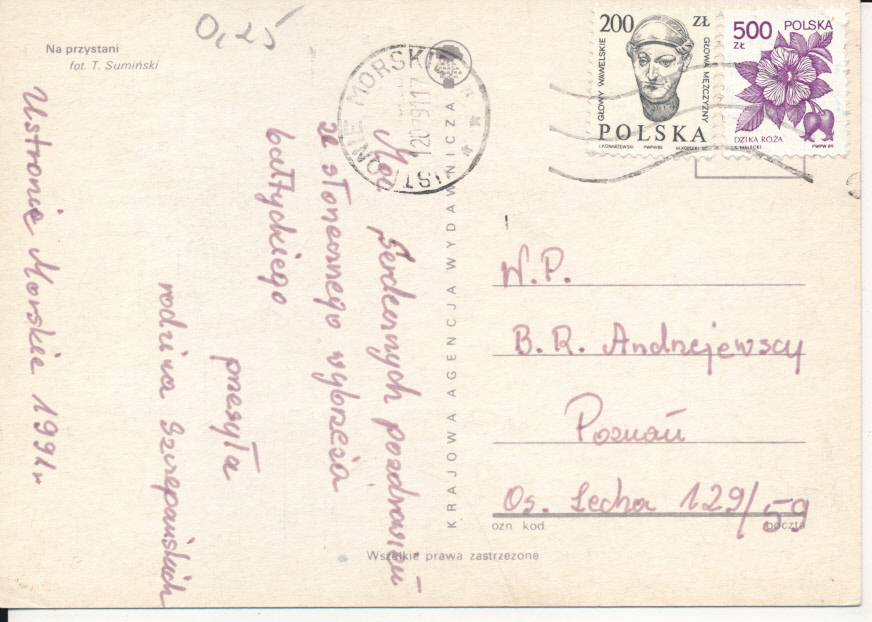 0,25
Na przystani
fot. T. Sumiński
Ustronie Morskie 1991r
Moc serdecznych pozdrowień
ze słonecznego wybrzeża
bałtyckiego
przesyła
rodzina Szczepańskich
USTRONIE MORSKIE
KRAJOWA AGENCJA WYDAWNICZA
200 ZŁ
GŁOWY WAWELSKIE
GŁOWA MĘŻCZYZNY
POLSKA
500 ZŁ
POLSKA
DZIKA RÓŻA
PWPW 89
W.P.
B. R. Andrzejewscy
Poznań
Os. Lecha 129/59
ozn. kod
poczta
Wszelkie prawa zastrzeżone